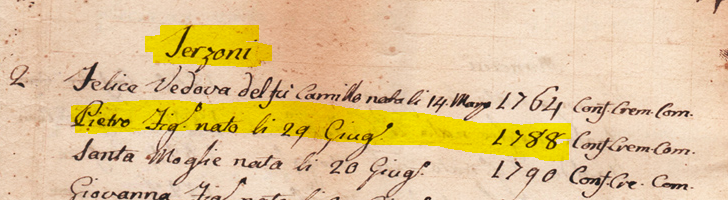 Terzoni
2 Felice Vedova del fù Camillo nata li 14 Marzo 1764 Conf. Crem. Com.
Pietro Fig.º nato li 29 Giugº. 1788 Conf. Crem. Com.
Santa Moglie nata li 20 Giugº. 1790 Conf. Cre. Com.
Giovanna